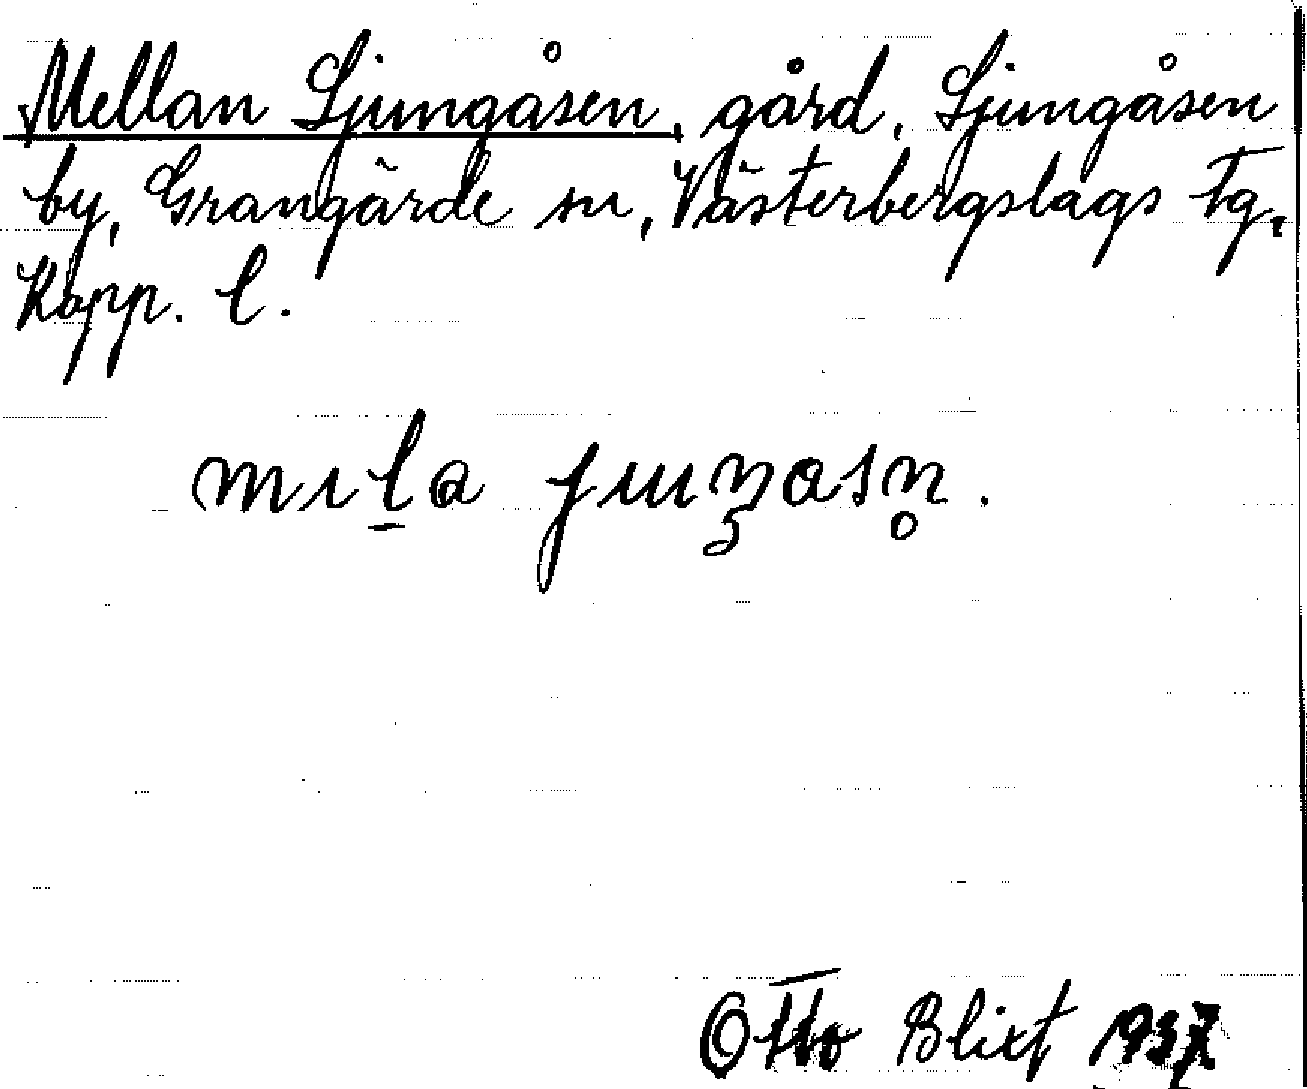 Mellan Ljungåsen, gård, Ljungåsen
by, Grangärde sn, Västerbergslags tg.
Kopp. l.
Otto Blixt 1937